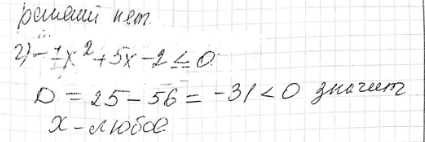 решений нет.
г) -7x² + 5x - 2 ≤ 0
D = 25 - 56 = -31 < 0 значит
x - любое